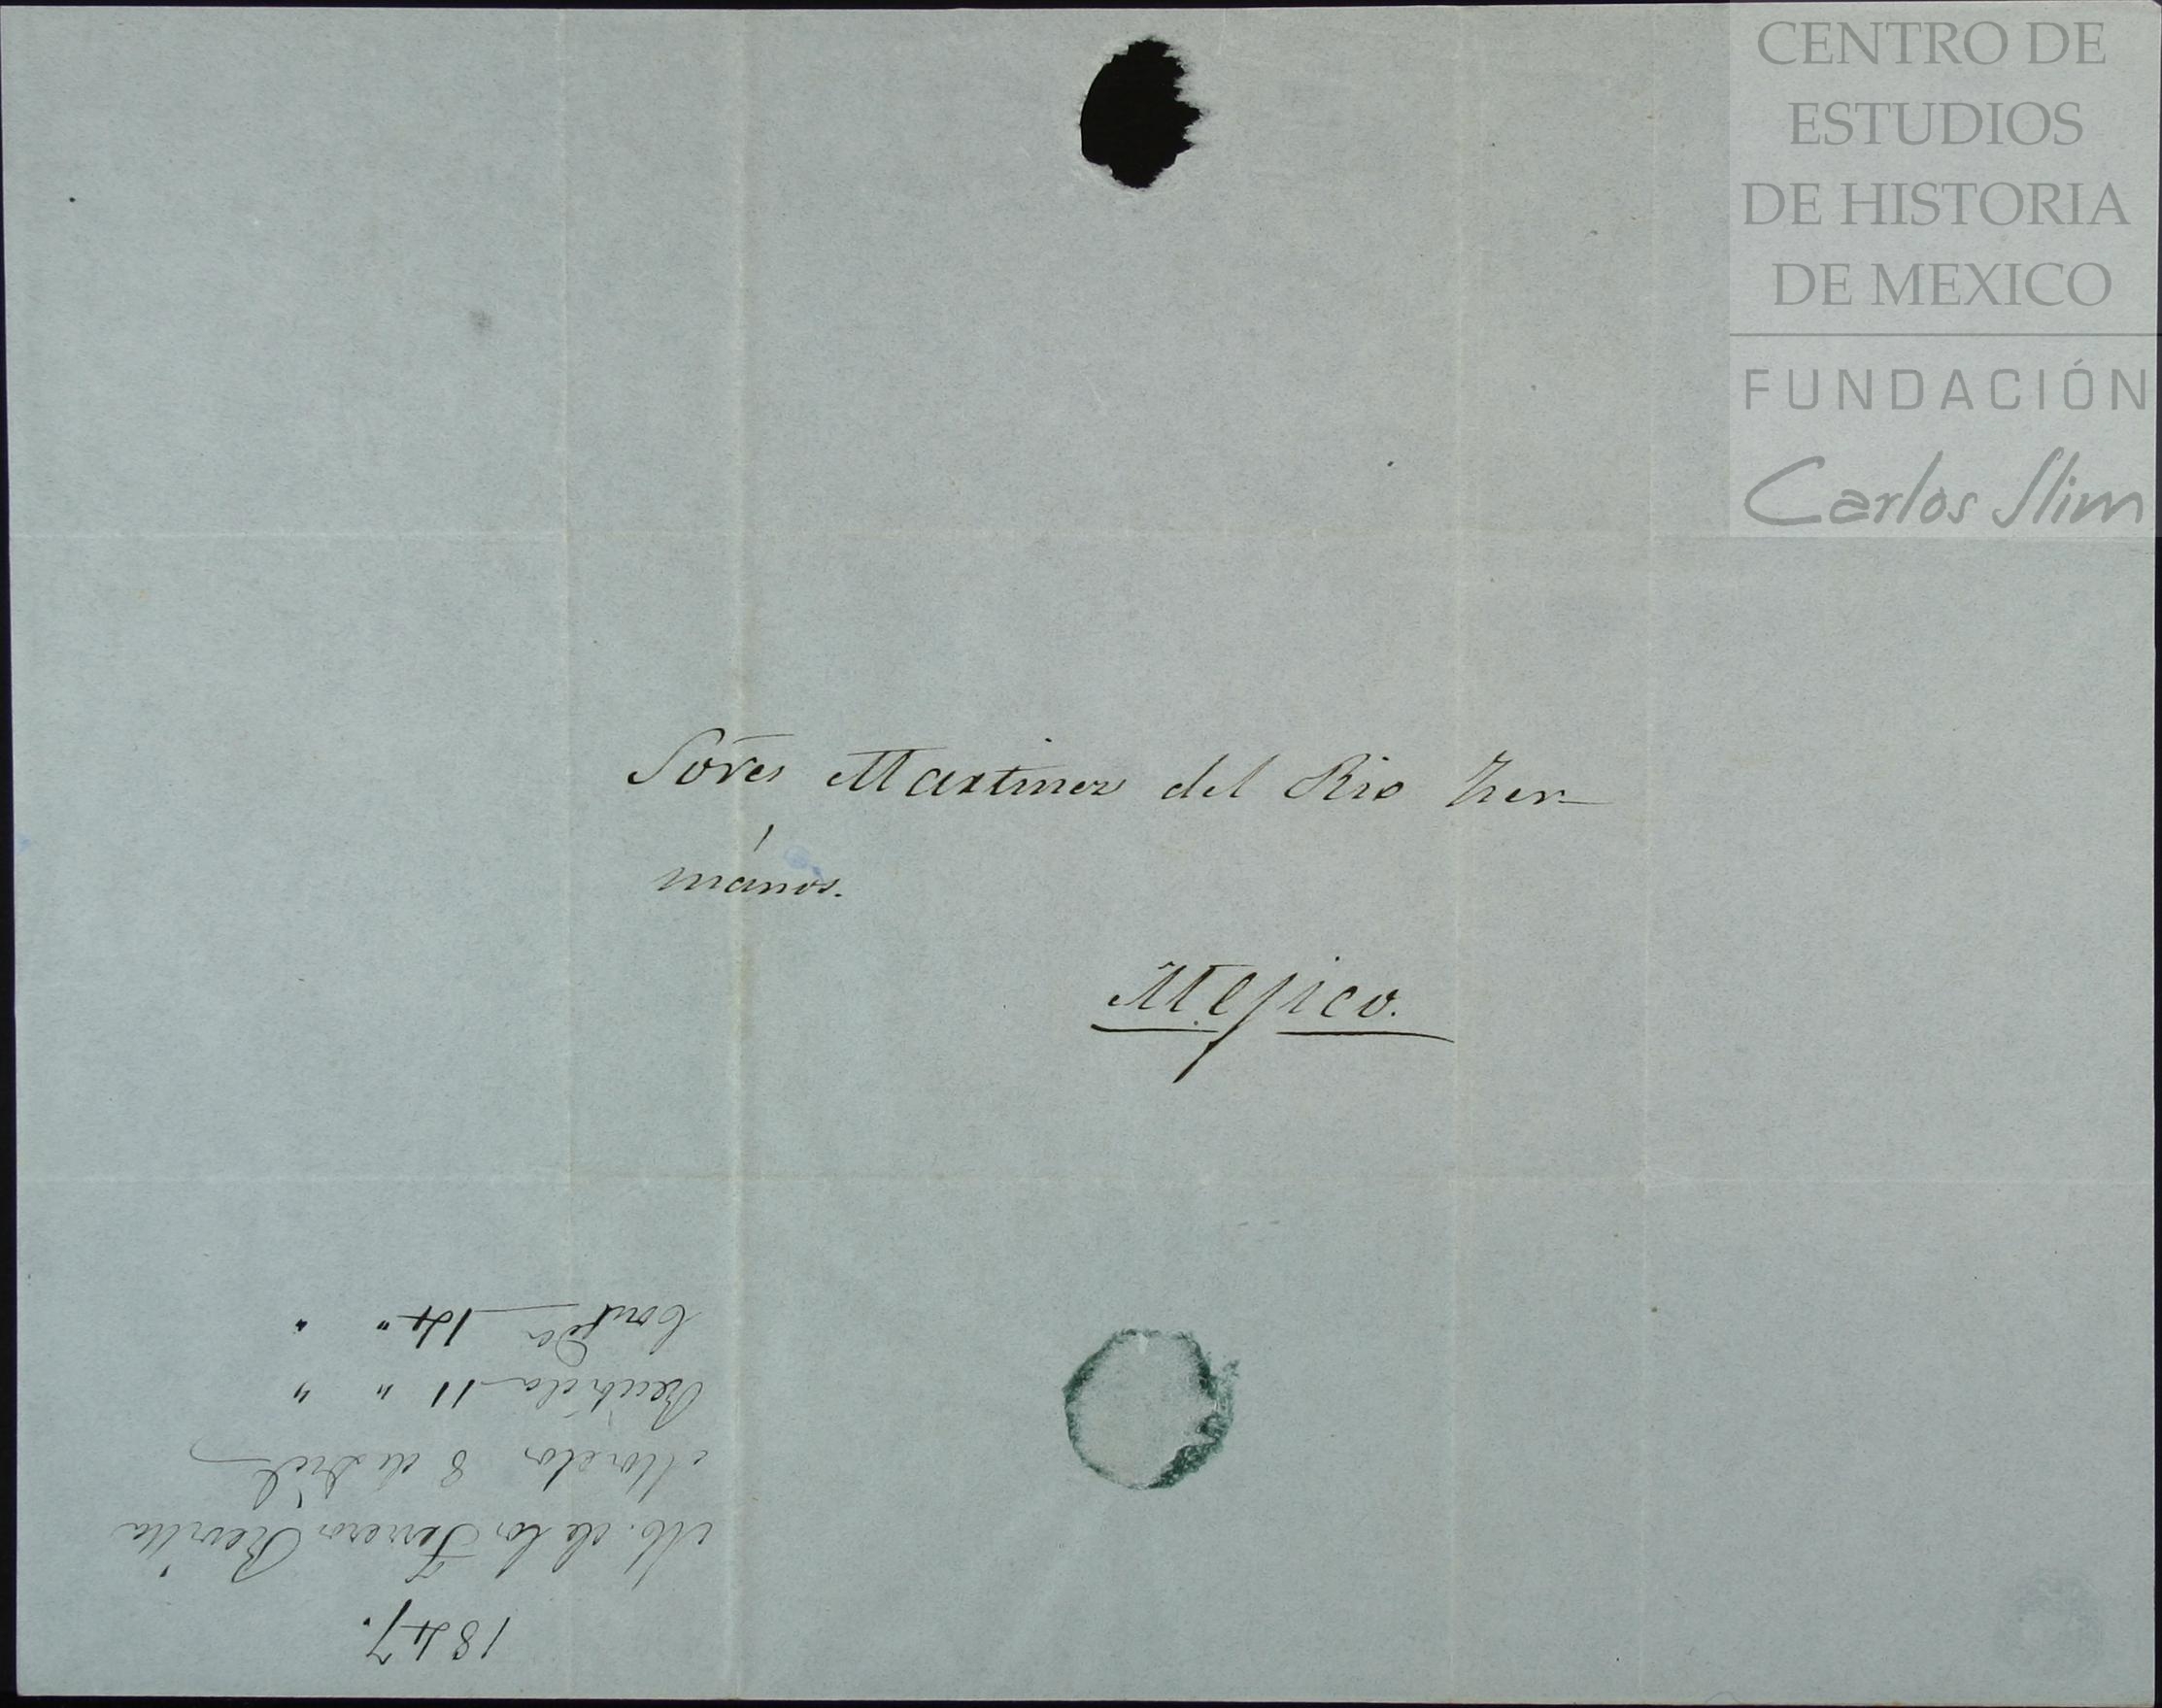 CENTRO DE
ESTUDIOS
DE HISTORIA
DE MEXICO
FUNDACIÓN
Carlos Slim
Sōres Martinez del Rio her-
mános.
Mejico.
1847.
M. de la Revilla
8 de
Recibida 11 " "
Contda 14 " "